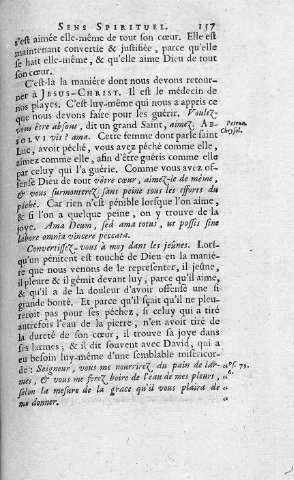 SENS SPIRITUEL. 157
s'est aimée elle-même de tout son cœur. Elle est
maintenant convertie & justifiée, parce qu'elle
se hait elle-même, & qu'elle aime Dieu de tout
son cœur.
C'est-là la maniére dont nous devons retour-
ner à JESUS-CHRIST. Il est le médecin de
nos playes. C'est luy-même qui nous a appris ce
que nous devons faire pour les guérir. Voulez-
vous être absous, dit un grand Saint, aimez. AB-
SOLVI vis? ama. Cette femme dont parle saint
Petrus.
Chrysol.
Luc, avoit péché, vous avez péché comme elle,
aimez comme elle, afin d'être guéris comme elle
par celuy qui l'a guérie. Comme vous avez of-
fensé Dieu de tout vôtre cœur, aimez-le de même,
& vous surmonterez sans peine tous les efforts du
péché. Car rien n'est pénible lorsque l'on aime,
& si l'on a quelque peine, on y trouve de la
joye. Ama Deum, sed ama totus, ut possis sine
labore omnia vincere peccata.
Convertissez-vous à moy dans les jeûnes. Lors-
qu'un pénitent est touché de Dieu en la manié-
re que nous venons de le representer, il jeûne,
il pleure & il gémit devant luy, parce qu'il aime,
& qu'il a de la douleur d'avoir offensé une si
grande bonté. Et parce qu'il sçait qu'il ne pleu-
reroit pas pour ses péchez, si celuy qui a tiré
autrefois l'eau de la pierre, n'en avoit tiré de
la dureté de son cœur, il trouve sa joye dans
ses larmes, & il dit souvent avec David, qui a
eu besoin luy-même d'une semblable misericor-
de: Seigneur, vous me nourrirez du pain de lar-
mes, & vous me ferez boire de l'eau de mes pleurs,
selon la mesure de la grace qu'il vous plaira de
me donner.
Ps. 79.
6.